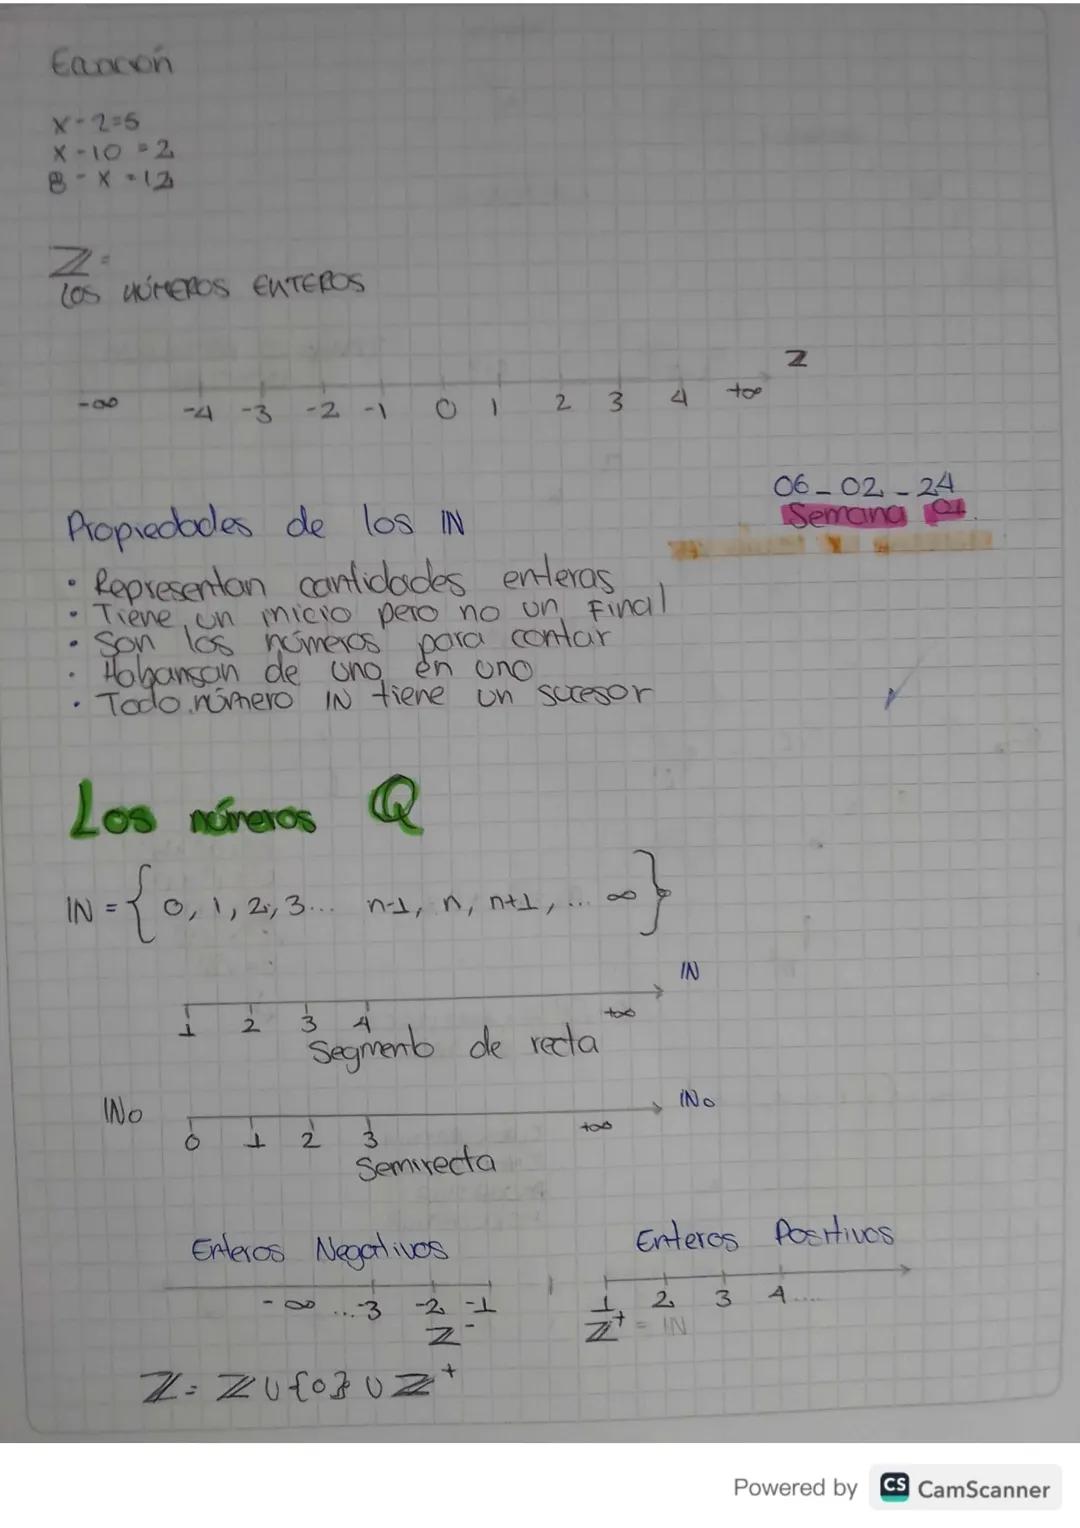 Ecuación
X - 2=5
X - 10 = 2
8 - X = 12
ℤ=
LOS NÚMEROS ENTEROS
Z
-∞ -4 -3 -2 -1 0 1 2 3 4 +∞
06-02-24
Semana 01
Propiedades de los IN
• Representan cantidades enteras
• Tiene un inicio pero no un Final
• Son los números para contar
• Habansan de uno en uno
• Todo número IN tiene un sucesor
Los números Q
IN = { 0, 1, 2, 3... n-1, n, n+1, ... ∞ }
IN
1 2 3 4 +∞
Segmento de recta
INo INo
0 1 2 3 +∞
Semirecta
Enteros Negativos Enteros Positivos
-∞ ...-3 -2 -1 1 2 3 4 ....
Z⁻ Z⁺ = IN
ℤ= ℤ∪{0}∪ℤ⁺
Powered by CS CamScanner